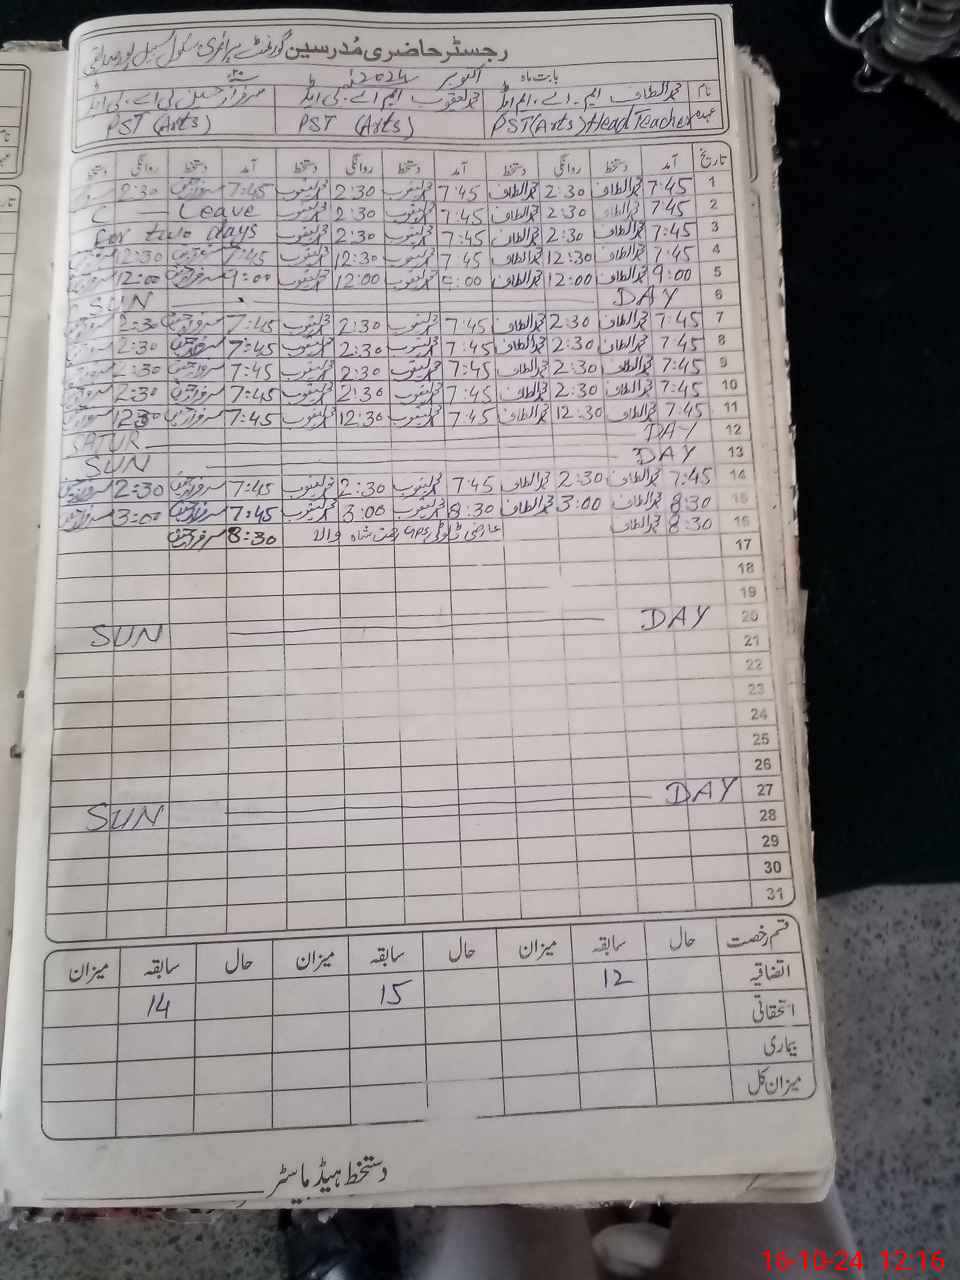 رجسٹر حاضری مُدرسین گورنمنٹ پرائمری سکول
بابت ماہ اکتوبر 2024ء
نام محمد الطاف ایم۔اے۔ایم ایڈ محمد یعقوب ایم اے۔بی ایڈ سرفراز حسین بی۔اے۔بی ایڈ
عہدہ PST(Arts) Head Teacher PST (Arts) PST (Arts)
تاریخ آمد دستخط روانگی دستخط آمد دستخط روانگی دستخط آمد دستخط روانگی دستخط
1 7:45 محمد الطاف 2:30 محمد الطاف 7:45 محمد یعقوب 2:30 محمد یعقوب 7:45 سرفراز حسین 2:30
2 7:45 محمد الطاف 2:30 محمد الطاف 7:45 محمد یعقوب 2:30 محمد یعقوب C — Leave
3 7:45 محمد الطاف 2:30 محمد الطاف 7:45 محمد یعقوب 2:30 محمد یعقوب For two days
4 7:45 محمد الطاف 12:30 محمد الطاف 7:45 محمد یعقوب 12:30 محمد یعقوب 7:45 سرفراز حسین 12:30
5 9:00 محمد الطاف 12:00 محمد الطاف 9:00 محمد یعقوب 12:00 محمد یعقوب 9:00 سرفراز حسین 12:00
6 SUN DAY
7 7:45 محمد الطاف 2:30 محمد الطاف 7:45 محمد یعقوب 2:30 محمد یعقوب 7:45 سرفراز حسین 2:30
8 7:45 محمد الطاف 2:30 محمد الطاف 7:45 محمد یعقوب 2:30 محمد یعقوب 7:45 سرفراز حسین 2:30
9 7:45 محمد الطاف 2:30 محمد الطاف 7:45 محمد یعقوب 2:30 محمد یعقوب 7:45 سرفراز حسین 2:30
10 7:45 محمد الطاف 2:30 محمد الطاف 7:45 محمد یعقوب 2:30 محمد یعقوب 7:45 سرفراز حسین 2:30
11 7:45 محمد الطاف 12:30 محمد الطاف 7:45 محمد یعقوب 12:30 محمد یعقوب 7:45 سرفراز حسین 12:30
12 SATUR DAY
13 SUN DAY
14 7:45 محمد الطاف 2:30 محمد الطاف 7:45 محمد یعقوب 2:30 محمد یعقوب 7:45 سرفراز حسین 2:30 سرفراز حسین
15 8:30 محمد الطاف 3:00 محمد الطاف 8:30 محمد یعقوب 3:00 محمد یعقوب 7:45 سرفراز حسین 3:00 سرفراز حسین
16 8:30 محمد الطاف عارضی ڈیوٹی GPS شاہ والا 8:30 سرفراز حسین
17
18
19
20 SUN DAY
21
22
23
24
25
26
27 SUN DAY
28
29
30
31
قسم رخصت حال سابقہ میزان حال سابقہ میزان حال سابقہ میزان
اتفاقیہ 12 15 14
استحقاقی
بیماری
میزان کل
دستخط ہیڈ ماسٹر
16-10-24 12:16